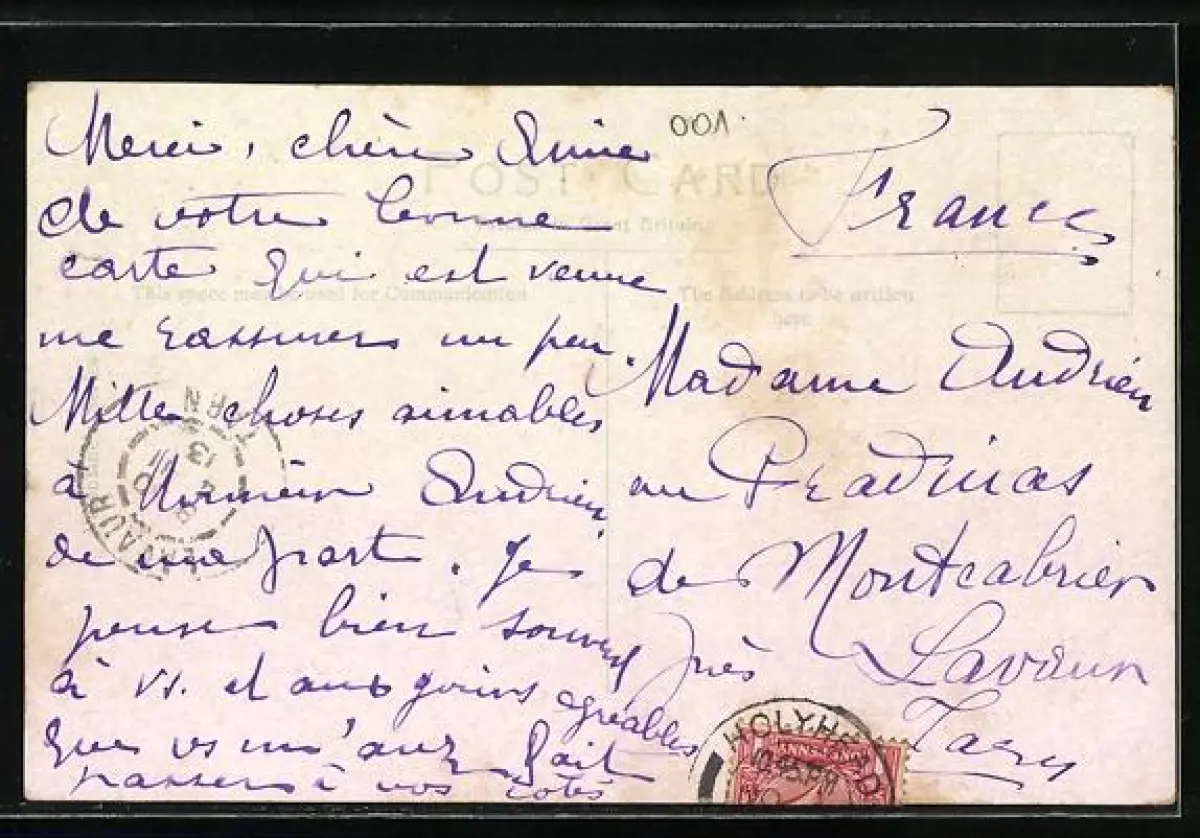 001.
Merci, chère Amie
de votre bonne
carte qui est venue
me rassurer un peu.
Mille choses aimables
à Monsieur Andrieu
de ma part. Je
pense bien souvent
à vs. et aux jours agréables
que vs m'avez fait
passer à vos côtés
POST CARD
Great Britain
This space may be used for Communication
The Address to be written
here
France
Madame Andrieu
au Pradinas
de Montcabrier
près Lavaur
Tarn
LAVAUR
TARN
13
HOLYHEAD
10.45 PM